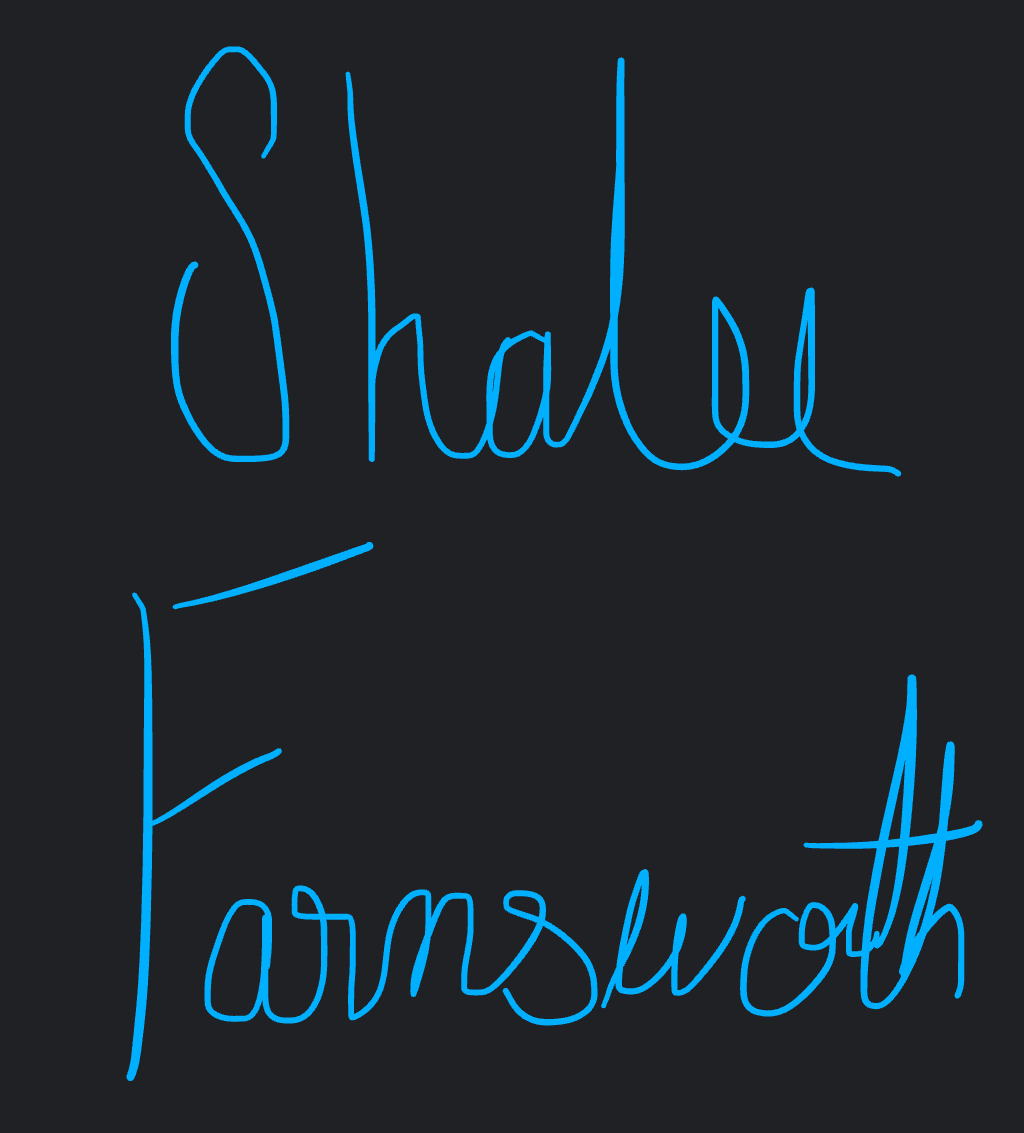 Shalee
Farnsworth